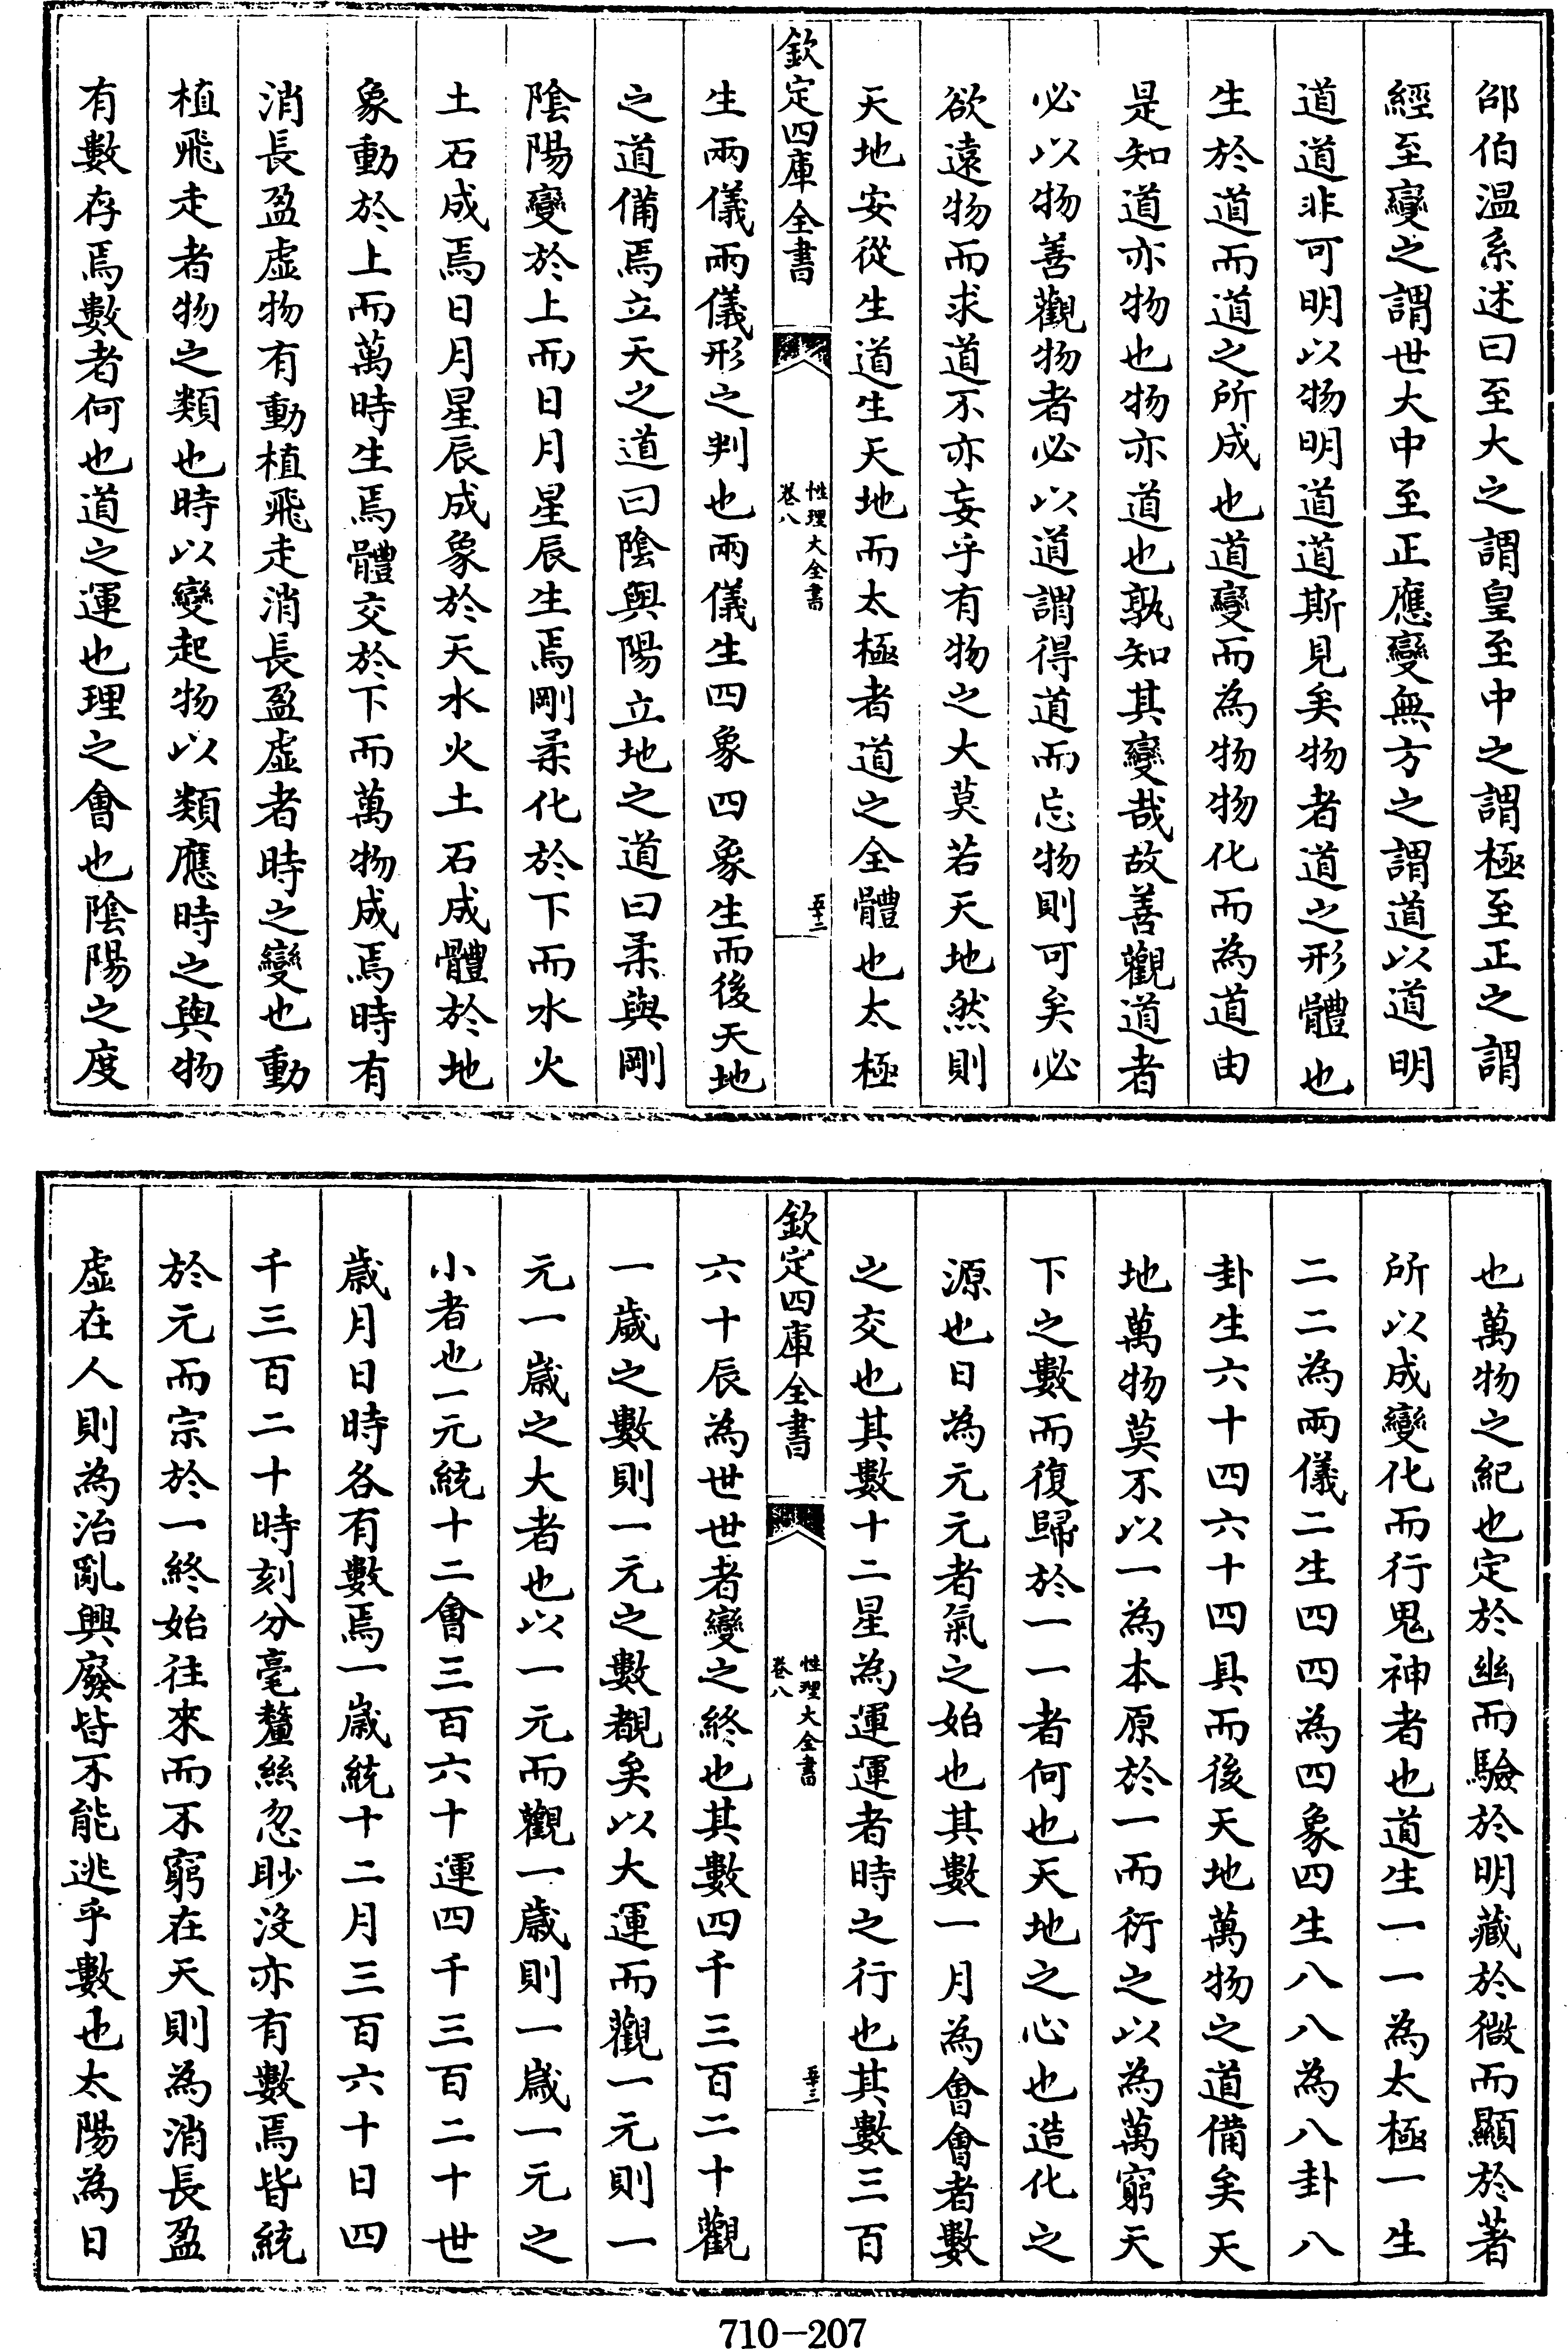 邵伯温系述曰至大之謂皇至中之謂極至正之謂
經至變之謂世大中至正應變無方之謂道以道明
道道非可明以物明道道斯見矣物者道之形體也
生於道而道之所成也道變而為物物化而為道由
是知道亦物也物亦道也孰知其變哉故善觀道者
必以物善觀物者必以道謂得道而忘物則可矣必
欲遠物而求道不亦妄乎有物之大莫若天地然則
天地安從生道生天地而太極者道之全體也太極
欽定四庫全書
性理大全書
卷八
五十二
生兩儀兩儀形之判也兩儀生四象四象生而後天地
之道備焉立天之道曰陰與陽立地之道曰柔與剛
陰陽變於上而日月星辰生焉剛柔化於下而水火
土石成焉日月星辰成象於天水火土石成體於地
象動於上而萬時生焉體交於下而萬物成焉時有
消長盈虛物有動植飛走消長盈虛者時之變也動
植飛走者物之類也時以變起物以類應時之與物
有數存焉數者何也道之運也理之會也陰陽之度
也萬物之紀也定於幽而驗於明藏於微而顯於著
所以成變化而行鬼神者也道生一一為太極一生
二二為兩儀二生四四為四象四生八八為八卦八
卦生六十四六十四具而後天地萬物之道備矣天
地萬物莫不以一為本原於一而衍之以為萬窮天
下之數而復歸於一一者何也天地之心也造化之
源也日為元元者氣之始也其數一月為會會者數
之交也其數十二星為運運者時之行也其數三百
欽定四庫全書
性理大全書
卷八
五十三
六十辰為世世者變之終也其數四千三百二十觀
一歲之數則一元之數覩矣以大運而觀一元則一
元一歲之大者也以一元而觀一歲則一歲一元之
小者也一元統十二會三百六十運四千三百二十世
歲月日時各有數焉一歲統十二月三百六十日四
千三百二十時刻分毫釐絲忽眇沒亦有數焉皆統
於元而宗於一終始往來而不窮在天則為消長盈
虛在人則為治亂興廢皆不能逃乎數也太陽為日
710-207